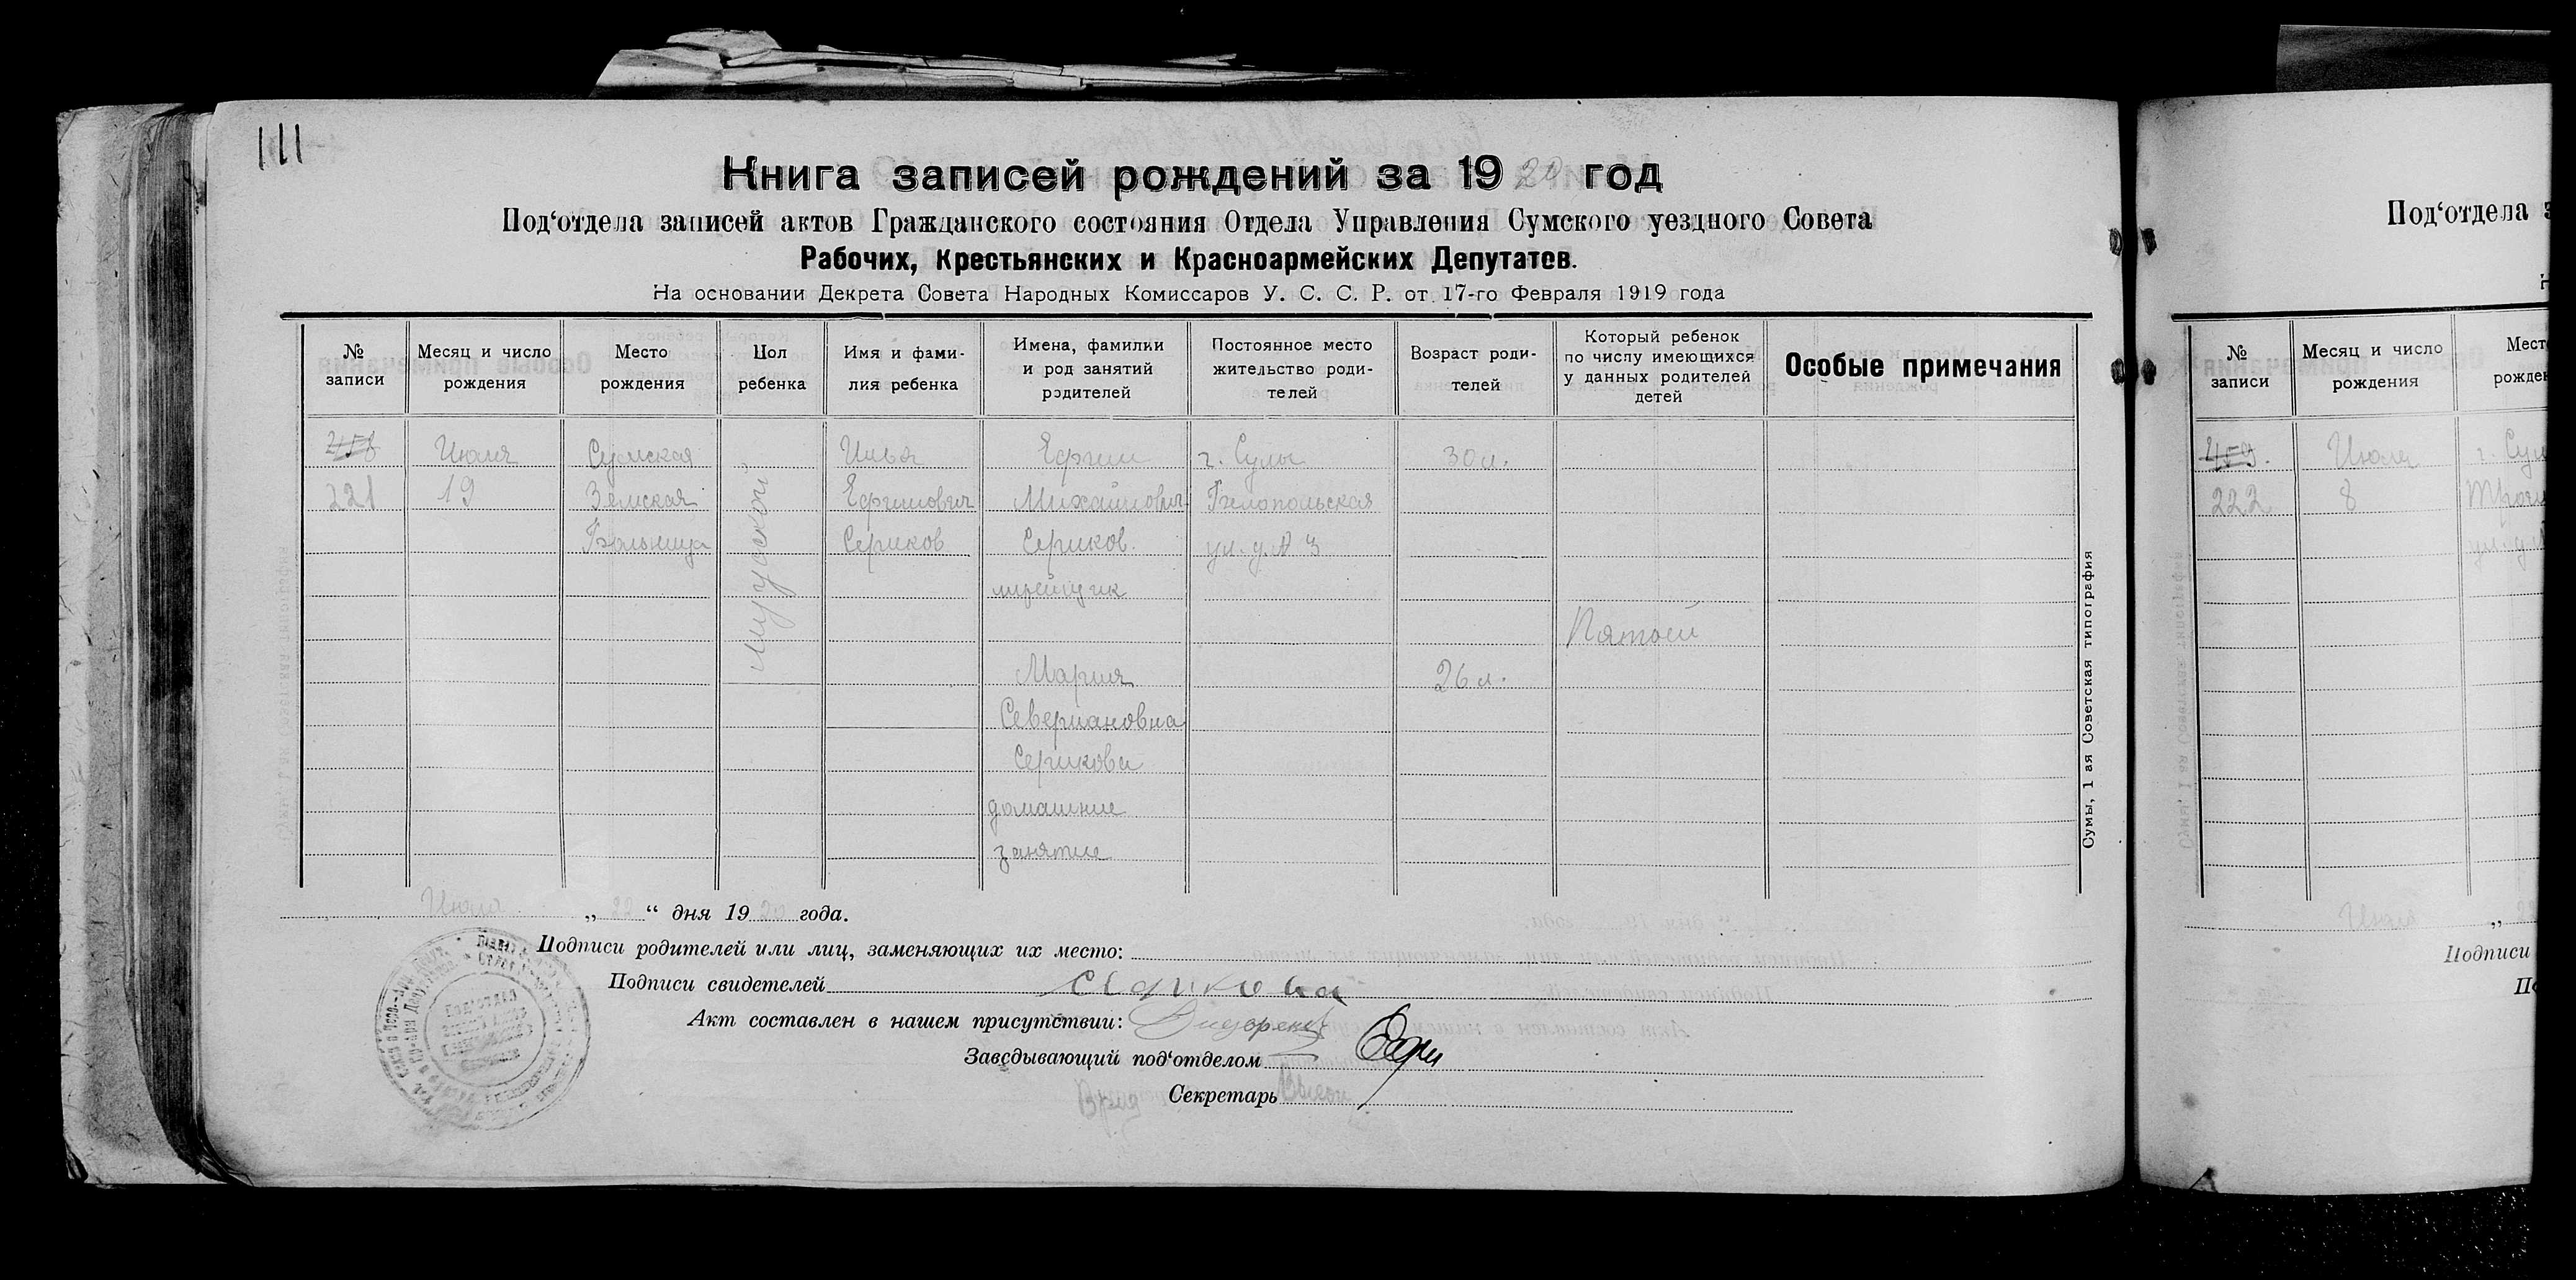 111
Книга записей рождений за 1920 год
Под‘отдела записей актов Гражданского состояния Отдела Управления Сумского уездного Совета
Рабочих, Крестьянских и Красноармейских Депутатов.
На основании Декрета Совета Народных Комиссаров У. С. С. Р. от 17-го Февраля 1919 года
№ записи
Месяц и число рождения
Место рождения
Пол ребенка
Имя и фами-
лия ребенка
Имена, фамилии
и род занятий
родителей
Постоянное место
жительство роди-
телей
Возраст роди-
телей
Который ребенок
по числу имеющихся
у данных родителей
детей
Особые примечания
458
221
Июля
19
Сумская
Земская
Больница
мужской
Илья
Ефимович
Сериков
Ефим
Михайлович
Сериков.
Мария
Севериановна
Серикова
домашние
занятие
г. Сумы
Белопольская
ул. д. № 3
30 л.
26 л.
Пятый
Июля „ 22 “ дня 1920 года.
Подписи родителей или лиц, заменяющих их место:
Подписи свидетелей
Акт составлен в нашем присутствии:
Заведывающий под‘отделом
Секретарь
Врид
Сумы, 1 ая Советская типография
Под‘отдела
№ записи
Месяц и число рождения
459.
222
Июля
8
г.
Июля „ 22
Подписи